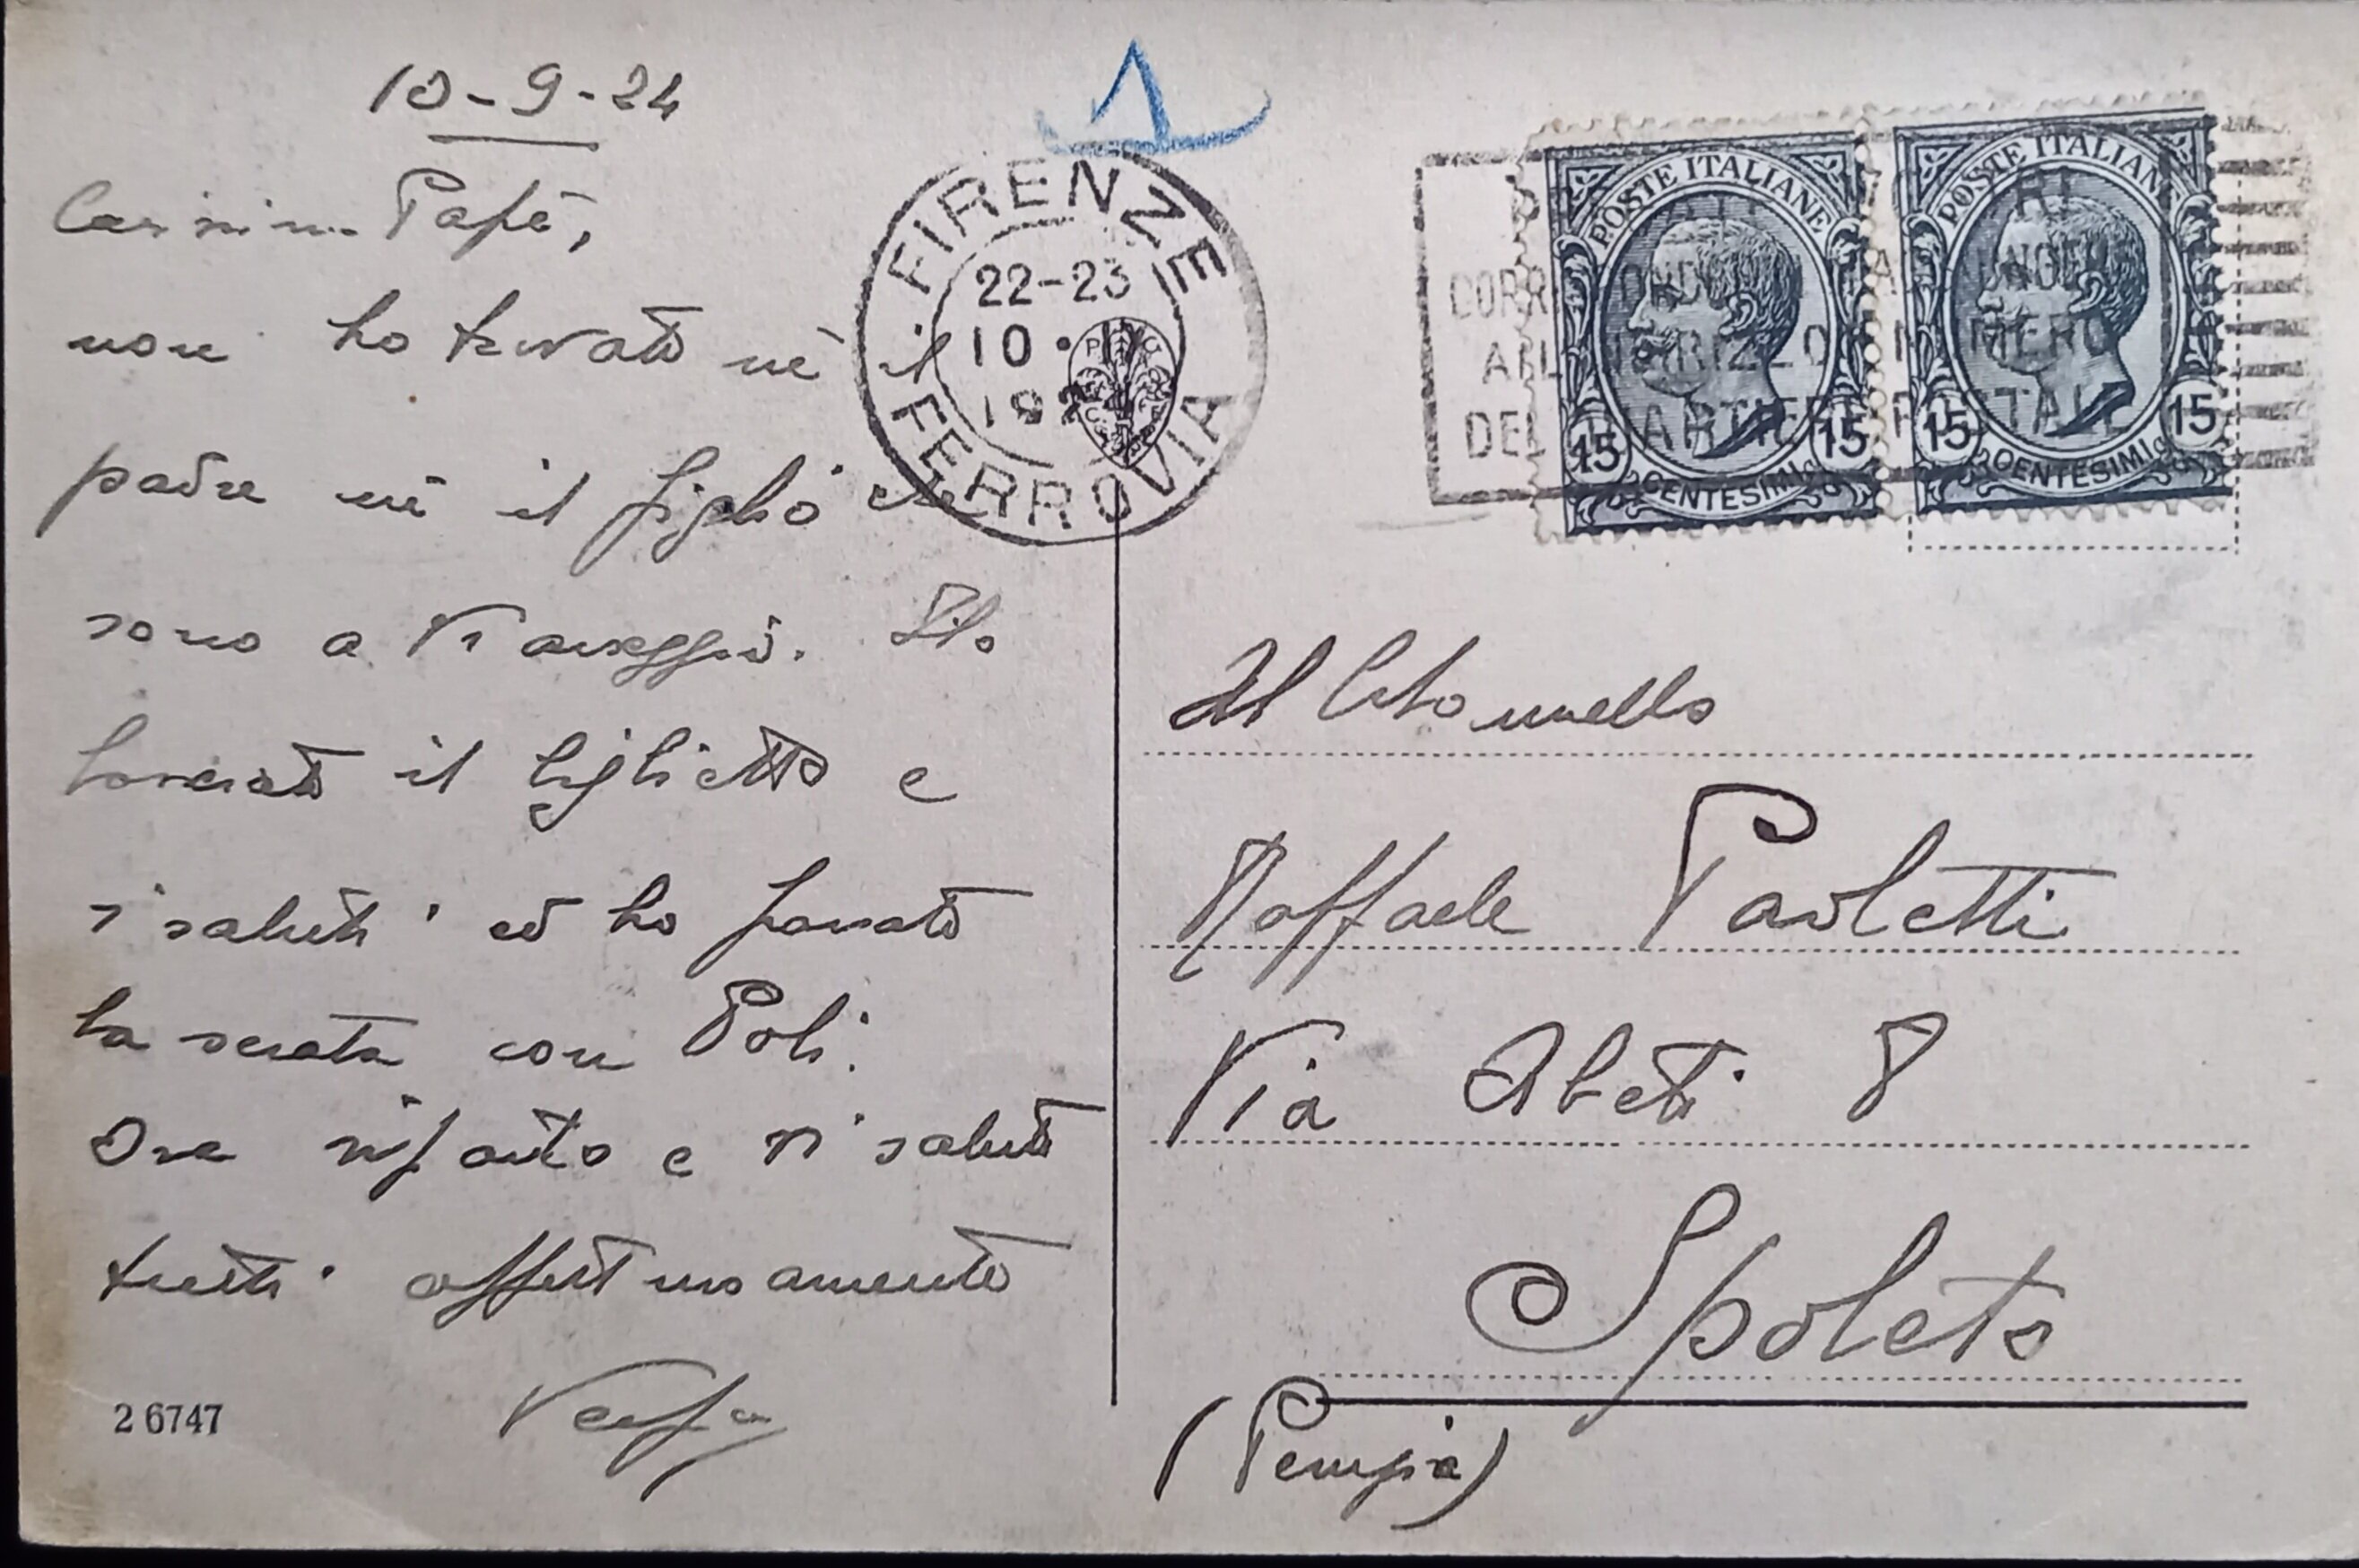 10-9-24
Carissimo Papà,
non ho trovato nè il
padre nè il figlio che
sono a Viareggio. Ho
lasciato il biglietto e
i saluti ed ho passato
la serata con Poli.
Ora riparto e vi saluto
tutti affettuosamente
26747
FIRENZE
22-23
10
192
FERROVIA
POSTE ITALIANE
15 CENTESIMI 15
POSTE ITALIANE
15 CENTESIMI 15
Al Colonnello
Raffaele Paoletti
Via Abeti 8
Spoleto
(Perugia)